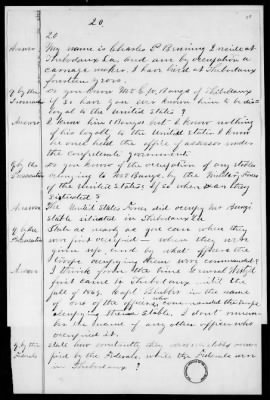 20
20
Answer My name is Charles P Bruning I reside at
Thibodaux La. and am by occupation a
carriage maker. I have lived at Thibodaux
fourteen years.
Q by the Do you know Mr E. W. Bangs of Thibodaux
if so have you ever known him to be dis-
loyal to the United States?
Answer I know him and I know nothing
of his loyalty to the United States I know
he once held the office of assessor under
the confederate government.
Q by the Do you know of the occupation of any stables
belonging to Mr Bangs by the Military Forces
of the United States; If so when was they
Answer The United States Forces did occupy Mr Bangs
stable situated in Thibodaux La
Q by the State as nearly as you can when they
were first occupied — when they were
given up, and by what officers the
troops occupying them were commanded?
Answer I think from the time General
first came to Thibodaux till the
fall of 1864. Capt is the name
of one of the officers who commanded the troops
occupying these stable. I don't remem-
ber the name of any other officer who
occupied it.
Q by the State how constantly they were
pied by the Federals, while the Federals were
in Thibodaux?